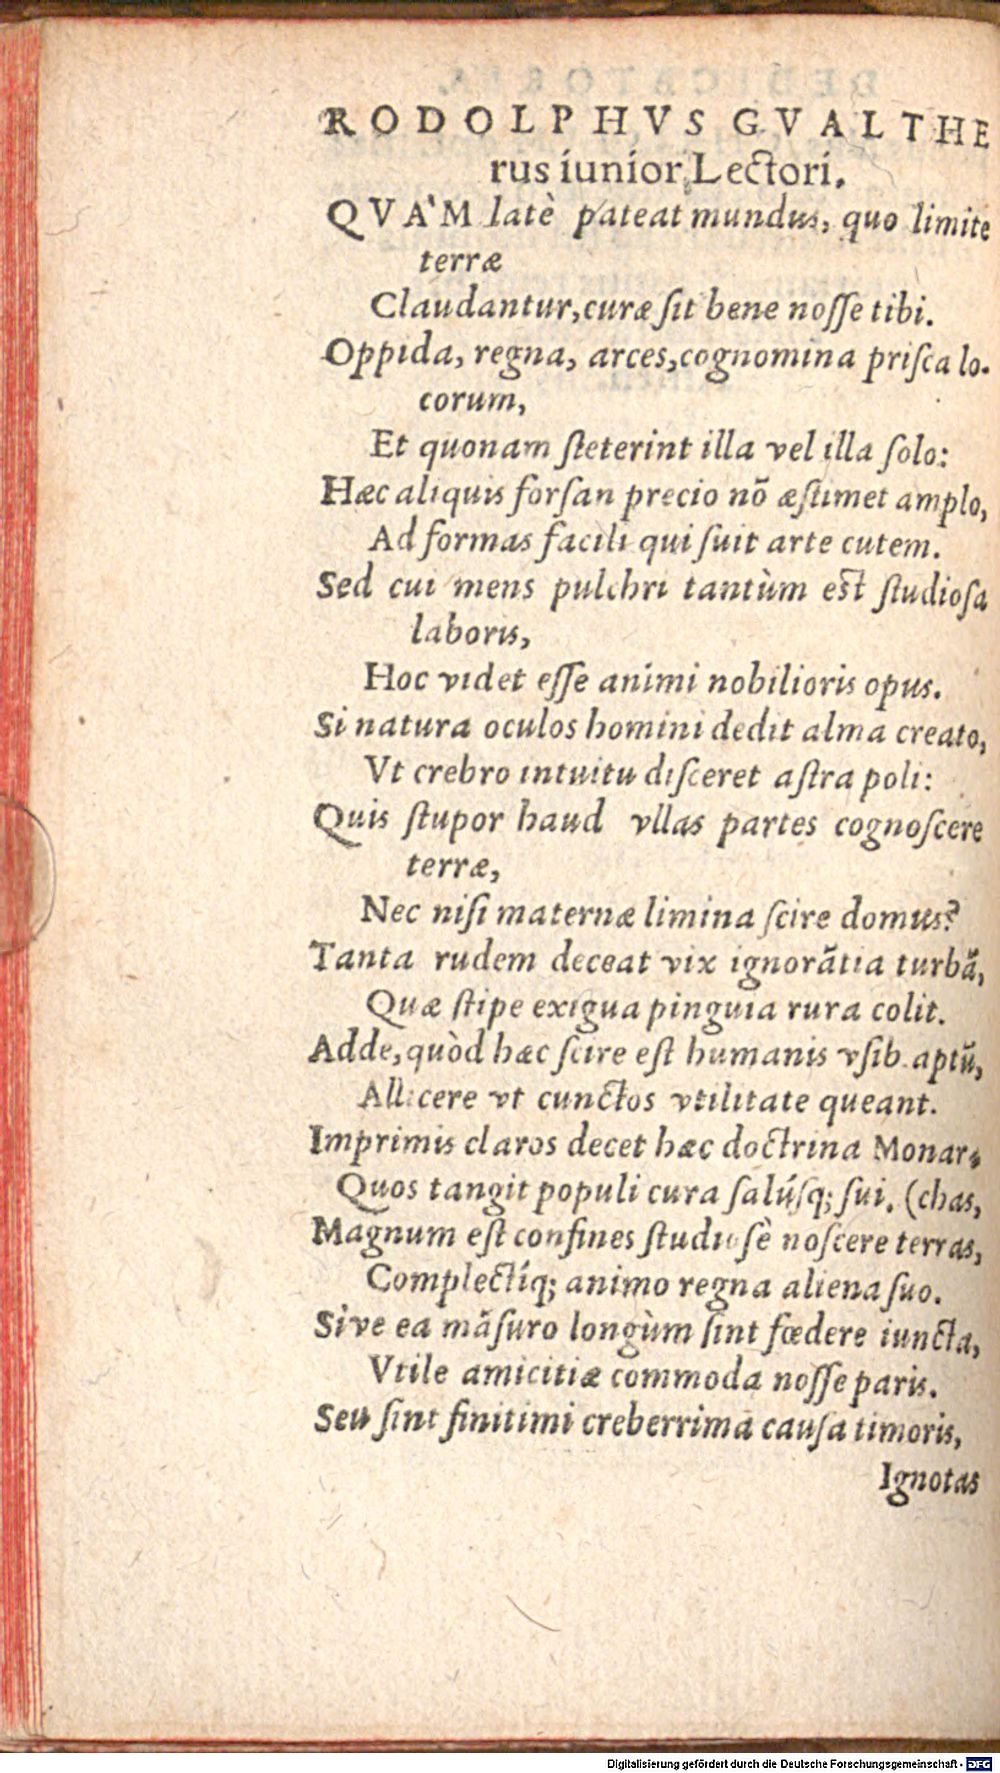 RODOLPHVS GVALTHE
rus iunior Lectori.
QVA'M latè pateat mundus, quo limite
terræ
Claudantur, curæ ſit bene noſſe tibi.
Oppida, regna, arces, cognomina priſca lo-
corum,
Et quonam ſteterint illa vel illa ſolo:
Hæc aliquis forſan precio nō æſtimet amplo,
Ad formas facili qui ſuit arte cutem.
Sed cui mens pulchri tantùm est ſtudioſa
laboris,
Hoc videt eſſe animi nobilioris opus.
Si natura oculos homini dedit alma creato,
Vt crebro intuitu diſceret aſtra poli:
Quis ſtupor haud vllas partes cognoſcere
terræ,
Nec niſi maternæ limina ſcire domus?
Tanta rudem deceat vix ignorātia turbā,
Quæ ſtipe exigua pinguia rura colit.
Adde, quòd hæc ſcire eſt humanis vſib. aptū,
Allicere vt cunctos vtilitate queant.
Imprimis claros decet hæc doctrina Monar-
Quos tangit populi cura salúſq; ſui. (chas,
Magnum eſt confines ſtudioſè noſcere terras,
Complectíq; animo regna aliena ſuo.
Sive ea māſuro longùm ſint fœdere iuncta,
Vtile amicitiæ commoda noſſe paris.
Seu ſint finitimi creberrima cauſa timoris,
Ignotas
Digitalisierung gefördert durch die Deutsche Forschungsgemeinschaft - DFG